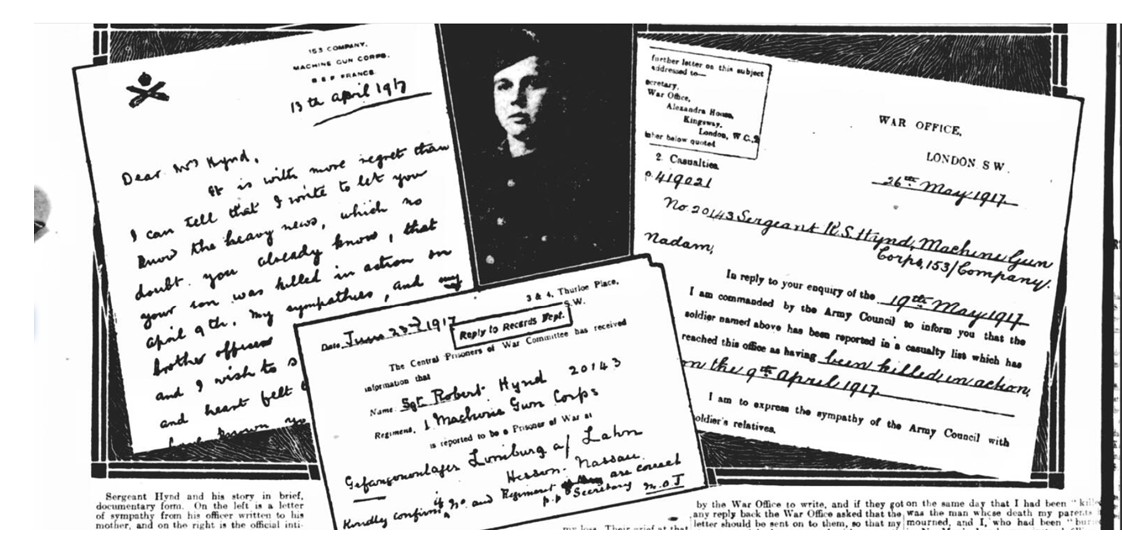 153 COMPANY,
MACHINE GUN CORPS,
B E F FRANCE.
13th April 1917
Dear Mrs Hynd,
It is with more regret than
I can tell that I write to let you
know the heavy news, which no
doubt you already know, that
your son was killed in action on
April 9th. My sympathies, and my
brother officers
and I wish to s
and heart felt
further letter on this subject
addressed to—
ecretary,
War Office,
Alexandra House,
Kingsway,
London, W.C.2
ber below quoted
WAR OFFICE,
LONDON S W.
26th May 1917
2 Casualties
419021
No 20143 Sergeant R. S. Hynd, Machine Gun
Corps, 153/Company.
Madam,
In reply to your enquiry of the 19th May 1917
I am commanded by the Army Council to inform you that the
soldier named above has been reported in a casualty list which has
reached this office as having been killed in action,
on the 9th April 1917.
I am to express the sympathy of the Army Council with
oldier's relatives.
3 & 4, Thurloe Place,
S.W.
Date June 23rd 1917
Reply to Records Dept.
The Central Prisoners of War Committee has received
information that
Name Sgt Robert Hynd 20143
Regiment, Machine Gun Corps
is reported to be a Prisoner of War at
Limburg a/ Lahn
Hessen. Nassau.
Kindly confirm if No. and Regiment are correct
p.p Secretary
Sergeant Hynd and his story in brief,
documentary form. On the left is a letter
of sympathy from his officer written to his
mother, and on the right is the official inti-
my loss. Their grief at that
by the War Office to write, and if they got
any reply back the War Office asked that the
letter should be sent on to them, so that my
on the same day that I had been "kille
was the man whose death my parents
mourned, and I, who had been "bur